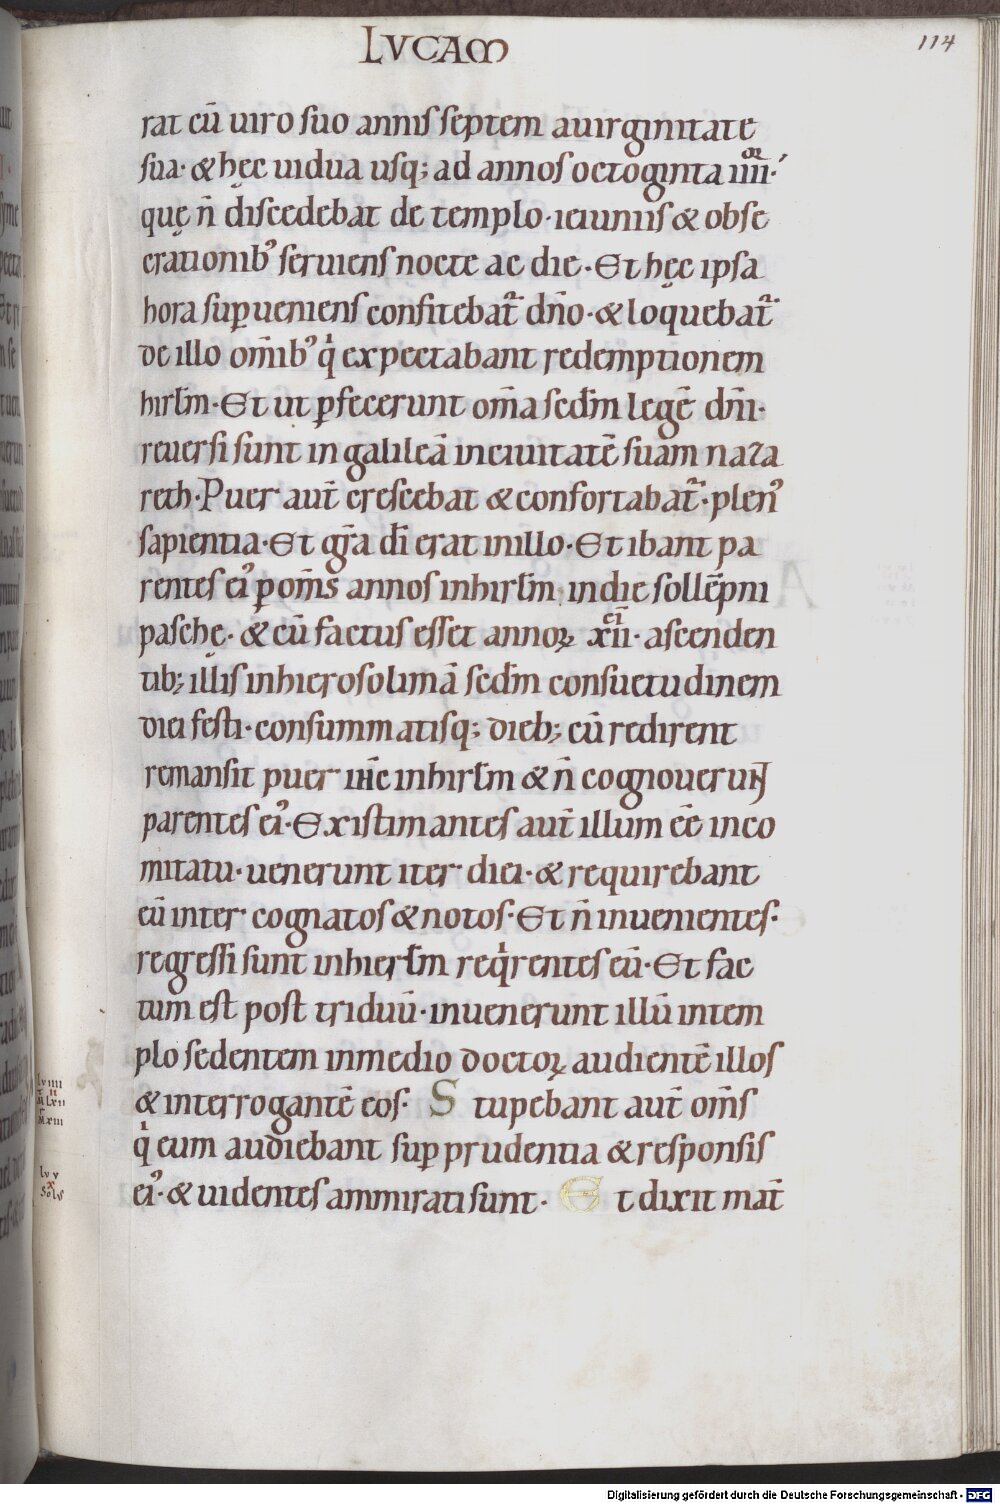 LVCAM
114
rat cū uiro suo annis septem auirginitate
sua· & hęc uidua usq; ad annos octoginta iiii·
quę n̄ discedebat de templo· ieiuniis & obse
crationib᾽ seruiens nocte ac die· Et hęc ipsa
hora supueniens confitebat᷑ dn̄o· & loquebat᷑
de illo om̄ib᾽ qͥ expectabant redemptionem
hirlm̄· Et ut ꝑfecerunt om̄a scdm̄ legē dn̄i·
reuersi sunt in galileā inciuitatē suam naza
reth· Puer aut̄ crescebat & confortabat᷑· plen᾽
sapientia· Et gr̄a dī erat inillo· Et ibant pa
rentes ei᾽ ꝑ om̄s annos inhirlm̄· indie sollēpni
paschę· & cū factus esset annoꝝ xii· ascenden
tib; illis inhierosolimā scdm̄ consuetudinem
diei festi· consummatisq; dieb; cū redirent
remansit puer ihc̄ inhirlm̄ & n̄ cognouerunt
parentes ei᾽· Existimantes aut̄ illum eē inco
mitatu· uenerunt iter diei· & requirebant
eū inter cognatos & notos· Et n̄ inuenientes·
regressi sunt inhierlm̄ reqͥrentes eū· Et fac
tum est post triduū· inuenerunt illū intem
plo sedentem inmedio doctoꝝ audientē illos
& interrogantē eos· Stupebant aut̄ om̄s
qͥ eum audiebant sup prudentia & responsis
ei᾽· & uidentes ammirati sunt· Et dixit mat̄
Digitalisierung gefördert durch die Deutsche Forschungsgemeinschaft - DFG